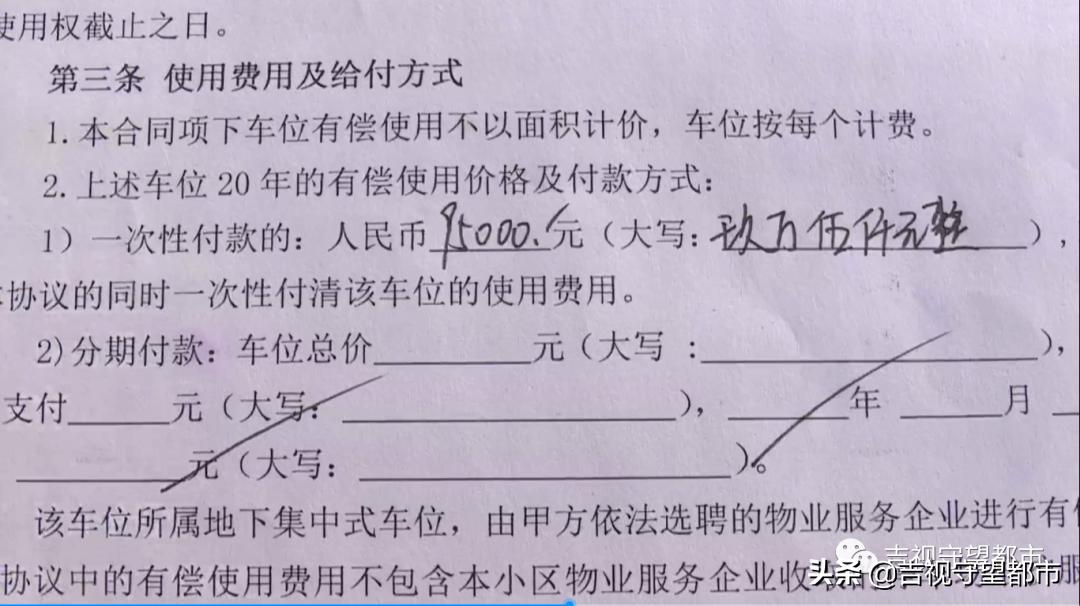 使用权截止之日。
第三条 使用费用及给付方式
1.本合同项下车位有偿使用不以面积计价，车位按每个计费。
2.上述车位20年的有偿使用价格及付款方式：
1）一次性付款的：人民币95000.元（大写：玖万伍仟元整），
协议的同时一次性付清该车位的使用费用。
2)分期付款：车位总价______元（大写 ：____________），
支付____元（大写：____________），____年____月
______元（大写：____________）。
该车位所属地下集中式车位，由甲方依法选聘的物业服务企业进行有
协议中的有偿使用费用不包含本小区物业服务企业收
吉视守望都市
头条 @吉视守望都市